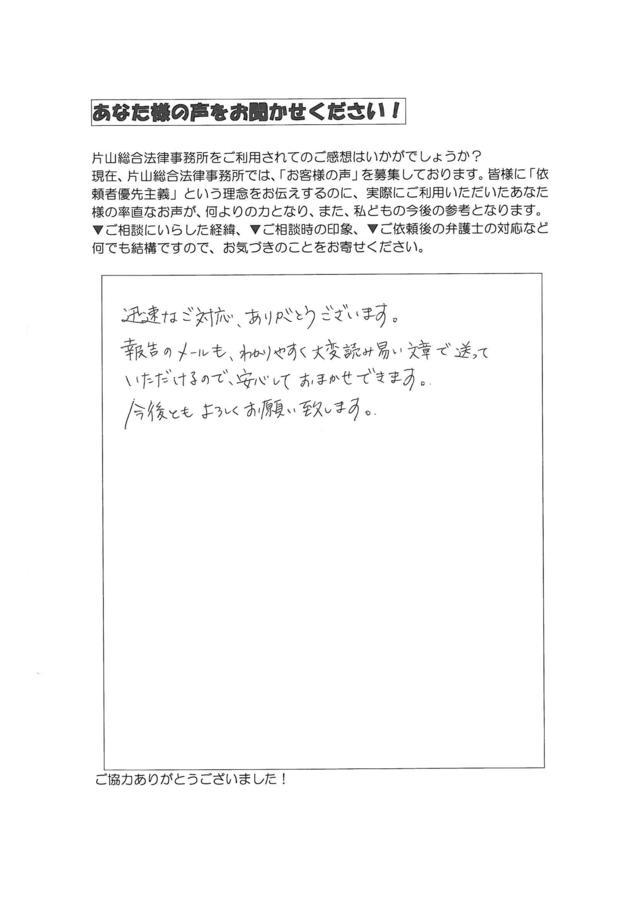 あなた様の声をお聞かせください!
片山総合法律事務所をご利用されてのご感想はいかがでしょうか?
現在、片山総合法律事務所では、「お客様の声」を募集しております。皆様に「依
頼者優先主義」という理念をお伝えするのに、実際にご利用いただいたあなた
様の率直なお声が、何よりの力となり、また、私どもの今後の参考となります。
▼ご相談にいらした経緯、▼ご相談時の印象、▼ご依頼後の弁護士の対応など
何でも結構ですので、お気づきのことをお寄せください。
迅速なご対応、ありがとうございます。
報告のメールも、わかりやすく大変読み易い文章で送って
いただけるので、安心しておまかせできます。
今後ともよろしくお願い致します。
ご協力ありがとうございました!